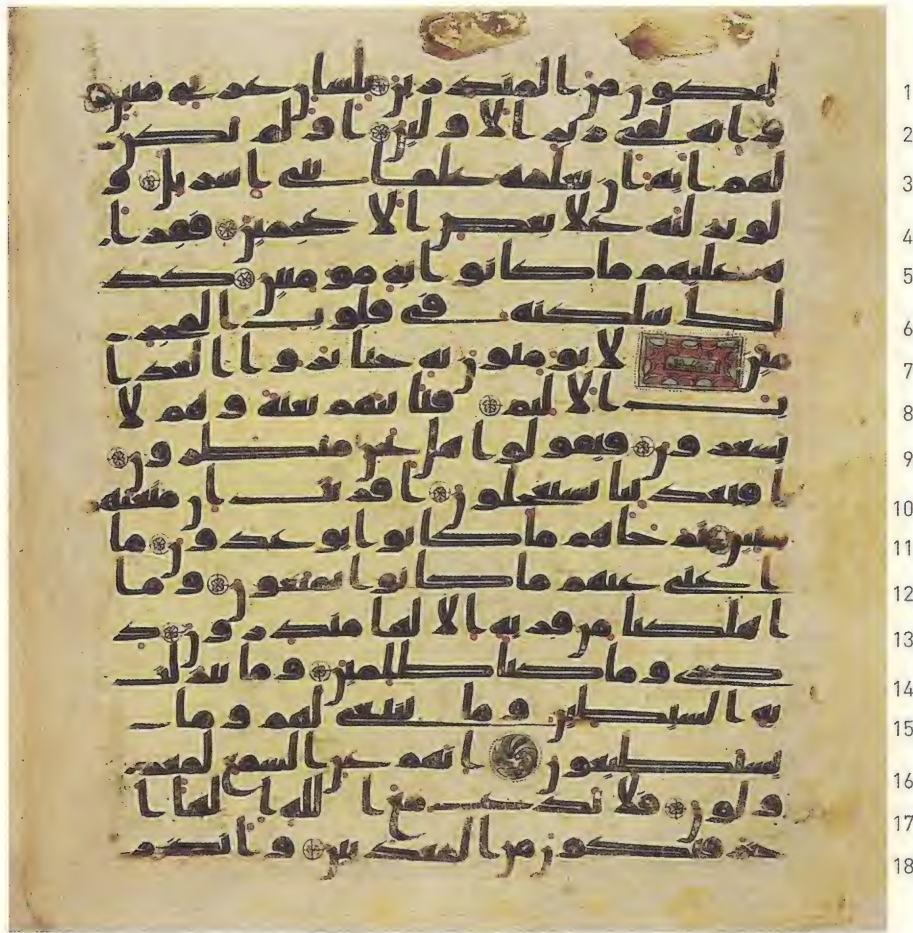 1 لتكون من المنذرين بلسان عربي مبين
2 و انه لفي زبر الاولين او لم يكن
3 لهم اية ان يعلمه علما بني اسريل و
4 لو نزلنه على بعض الاعجمين فقرا
5 ه عليهم ما كانوا به مومنين كذ
6 لك سلكنه في قلوب المجر
7 مين لا يومنون به حتى يروا العذا
8 ب الاليم فياتيهم بغتة وهم لا
9 يشعرون فيقولوا هل نحن منظرون
10 افبعذابنا يستعجلون افريت ان متعنهم
11 سنين ثم جاهم ما كانوا يوعدون ما
12 اغنى عنهم ما كانوا يمتعون وما
13 اهلكنا من قرية الا لها منذرون ذ
14 كرى وما كنا ظلمين وما تنزلت
15 به الشيطين وما ينبغي لهم وما
16 يستطيعون انهم عن السمع لمعز
17 ولون فلا تدع مع الله الها ا
18 خر فتكون من المعذبين وانذر